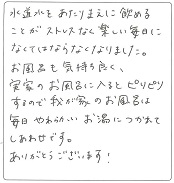 水道水をあたりまえに飲める
ことがストレスなく楽しい毎日に
なくてはならなくなりました。
お風呂も気持ち良く、
実家のお風呂に入るとピリピリ
するので我が家のお風呂は
毎日やわらかいお湯につかれて
しあわせです。
ありがとうございます!